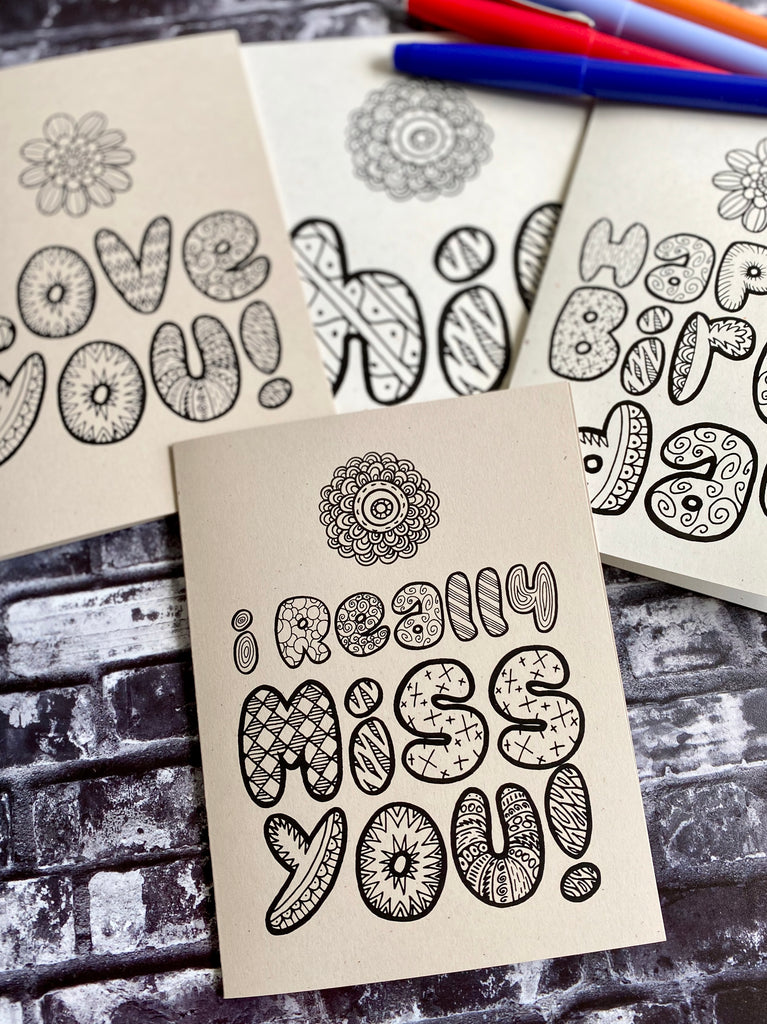 Love
you!
hi!
Happy
Birth
day
i Really
Miss
you!